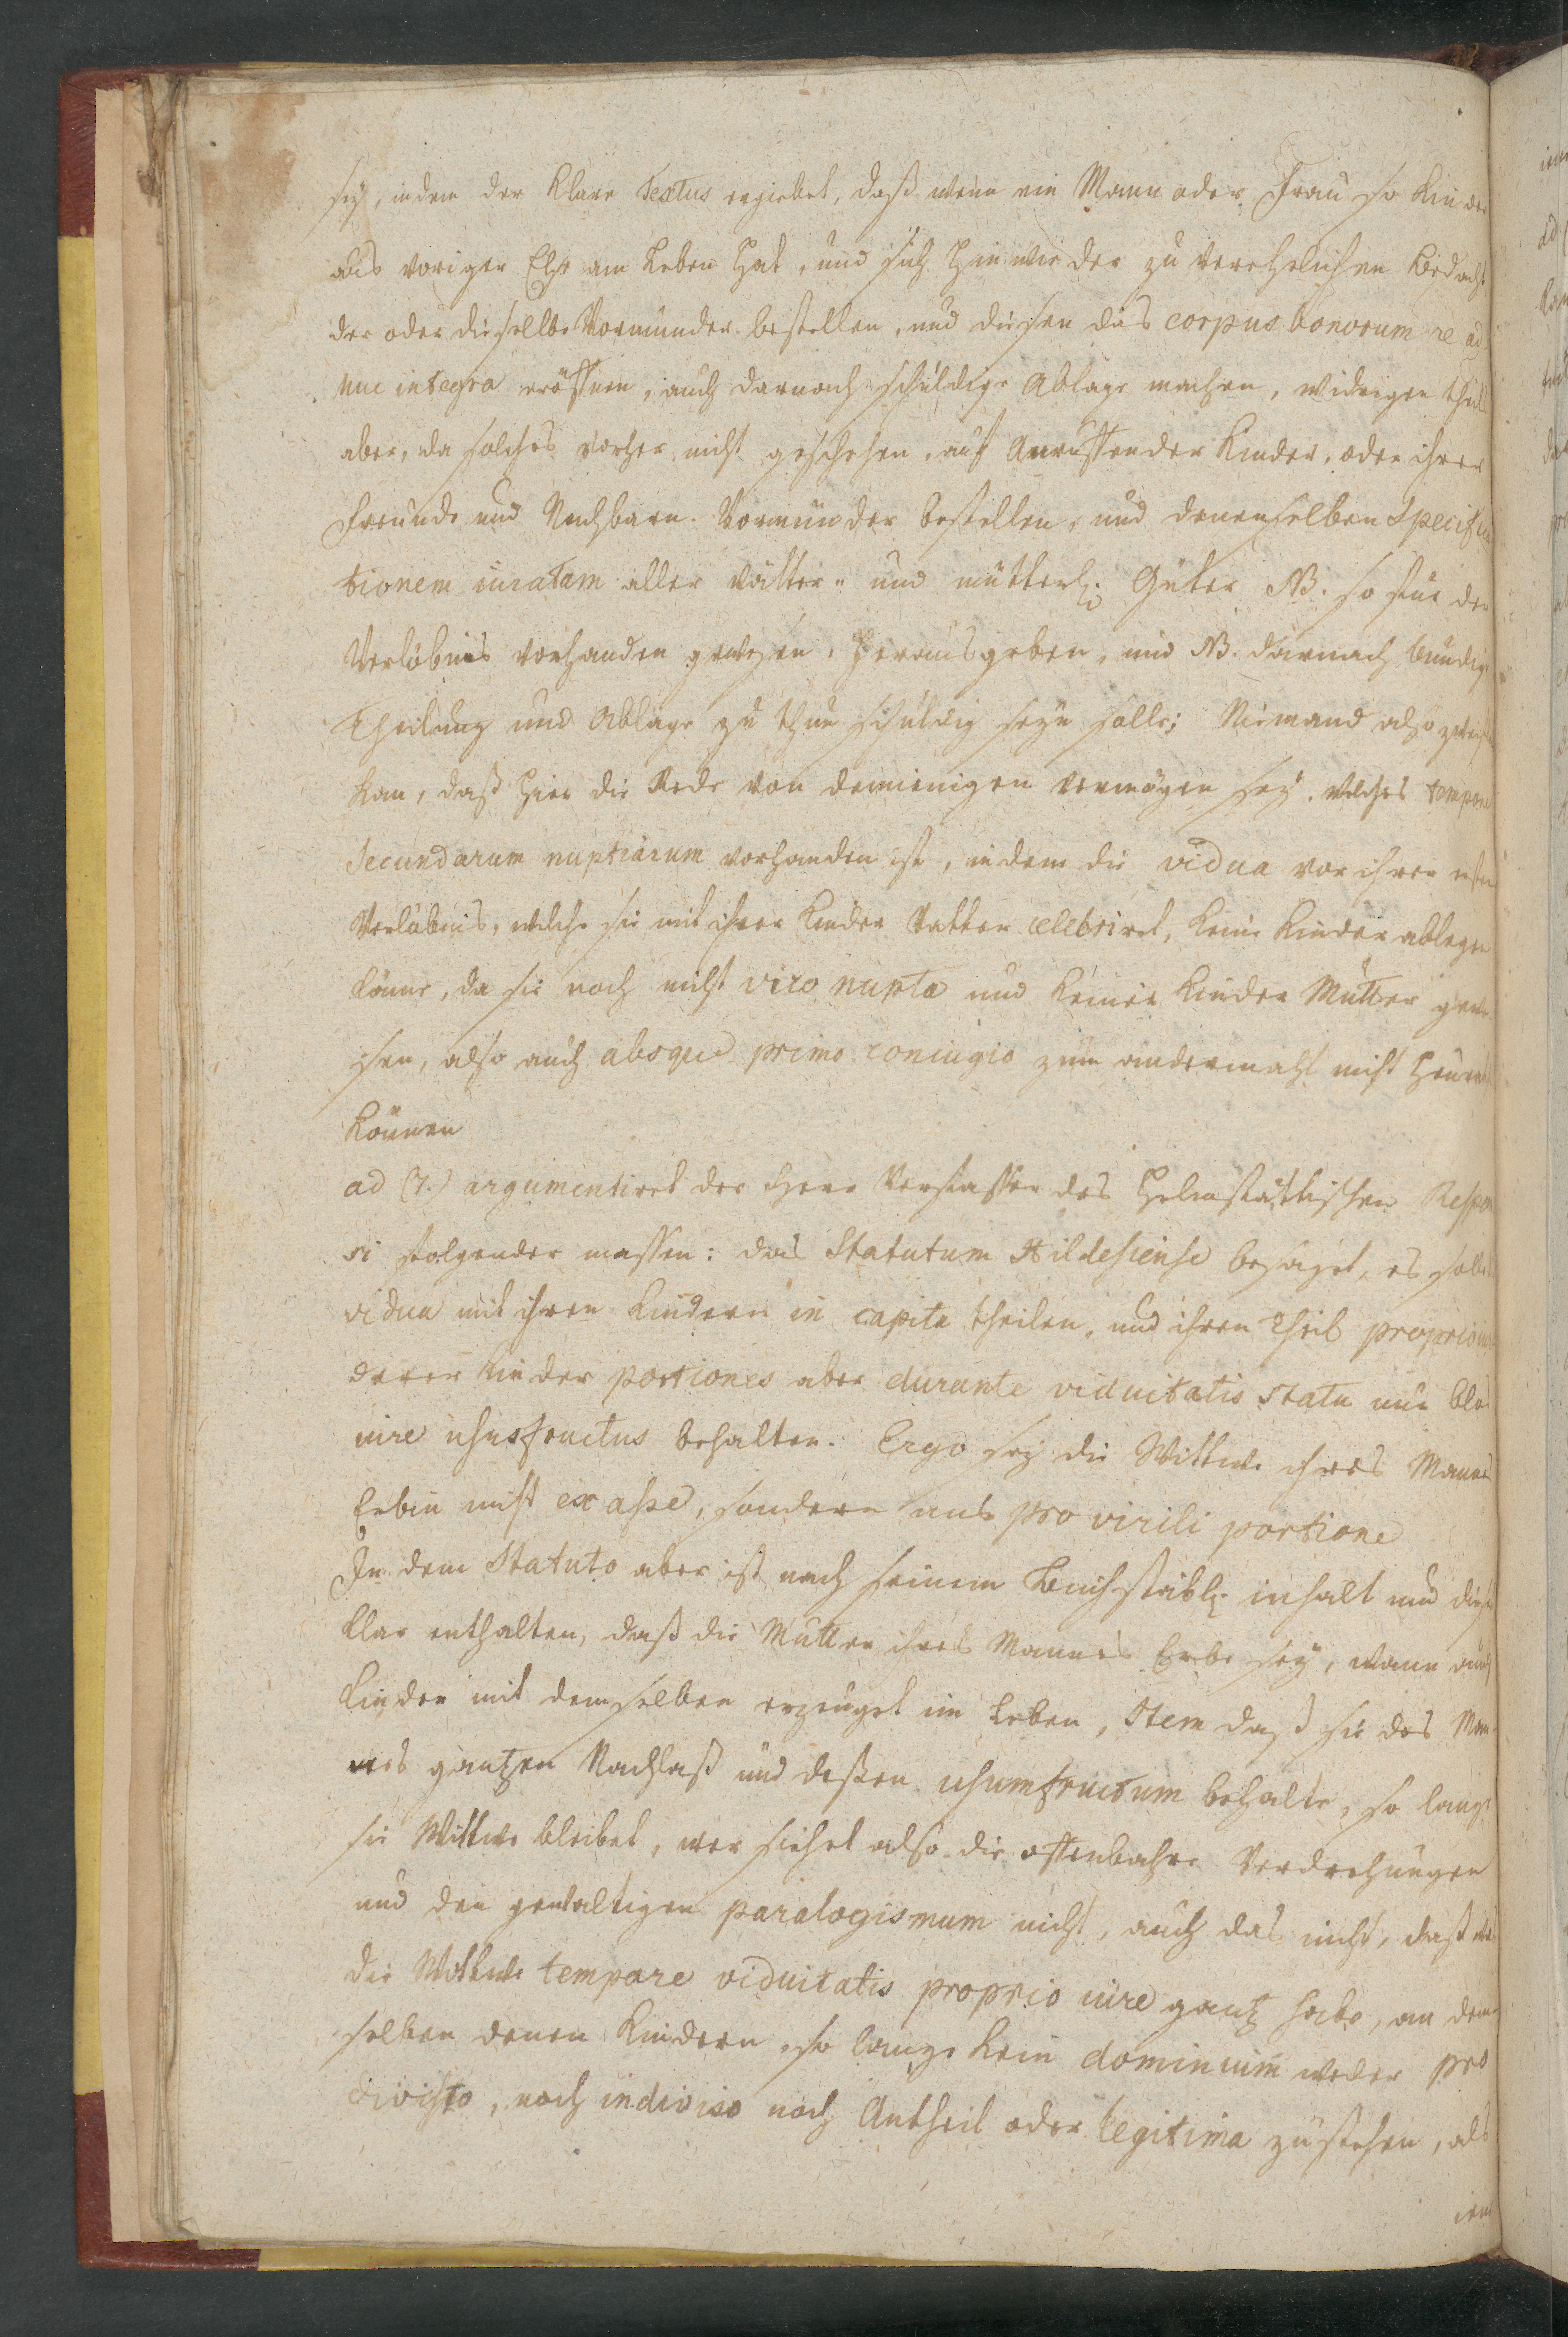 sey, indem der klare Textus ergiebet, daß wenn ein Mann oder Frau so Kinder
aus voriger Ehe am Leben hat, und sich hinwieder zu verehelichen bedacht
der oder dieselbe Vormünder bestellen, und diesen das corpus bonorum re ad
huc integra eröffnen, auch darnach schuldige Ablage machen, widrigen theils
aber, da solches vorher nicht geschehen, auf Anruffen der Kinder, oder ihrer
Freunde und Nachbarn Vormünder bestellen, und denenselben Specifica
tionem iuratam aller vätter- und mütterl. Güter NB. so für der
Verlöbnis vorhanden gewesen, herausgeben, und NB. darnach bündige
Theilung und Ablage zu thun schuldig seyn solle; Niemand also
kan, daß hier die Rede von demienigen vermögen sey, welches tempore
Secundarum nuptiarum vorhanden ist, indem die vidua vor ihrer ersten
Verlöbnis, welche sie mit ihrer Kinder Vatter celebriret, keine Kinder ablegen
könne, da sie noch nicht viro nupta und keiner Kinder Mutter gewe-
sen, also auch absque primo coniugio zum andermahl nicht
können
ad (7.) argumentiret der Herr Verfasser des Helmstättischen Respon
si folgender massen: das Statutum Hildesiense besaget, es solle
vidua mit ihren Kindern in capita theilen, und ihren Theil proprio iure
derer Kinder portiones aber durante viduitatis statu nur blos
iure ususfructus behalten. Ergo sey die Wittwe ihres Mannes
Erbin nicht ex asse, sondern nur pro virili portione
In dem Statuto aber ist nach seinem buchstäbl. inhalt nur dieses
klar enthalten, daß die Mutter ihres Mannes Erbe sey, wann auch
Kinder mit demselben erzeuget im Leben, Item daß sie des Man-
nes gantzen Nachlaß und deßen usumfructum behalte, so lange
sie Wittwe bleibet, wer siehet also die offenbahre Verdrehungen
und den gewaltigen paralogismum nicht, auch das nicht, daß
die Wittwe tempore viduitatis proprio iure gantz habe, an dem-
selben denen Kindern so lange kein dominium weder pro
diviso, noch indiviso noch Antheil oder legitima zustehen, als